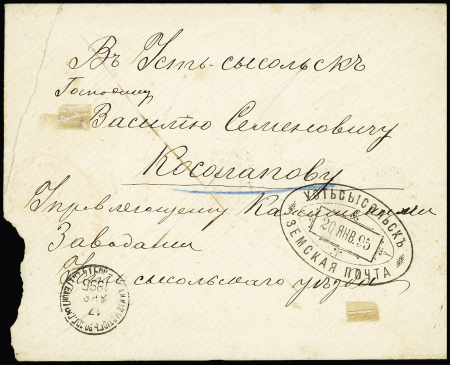 Въ Усть-сысольскъ
Господину
Василію Семеновичу
Косолапову
Управляющему
Заводами
Усть сысольскаго уѣзда
УСТЬСЫСОЛЬСКЪ
20 ЯНВ. 95
ЗЕМСКАЯ ПОЧТА
17
ЯНВ
1895